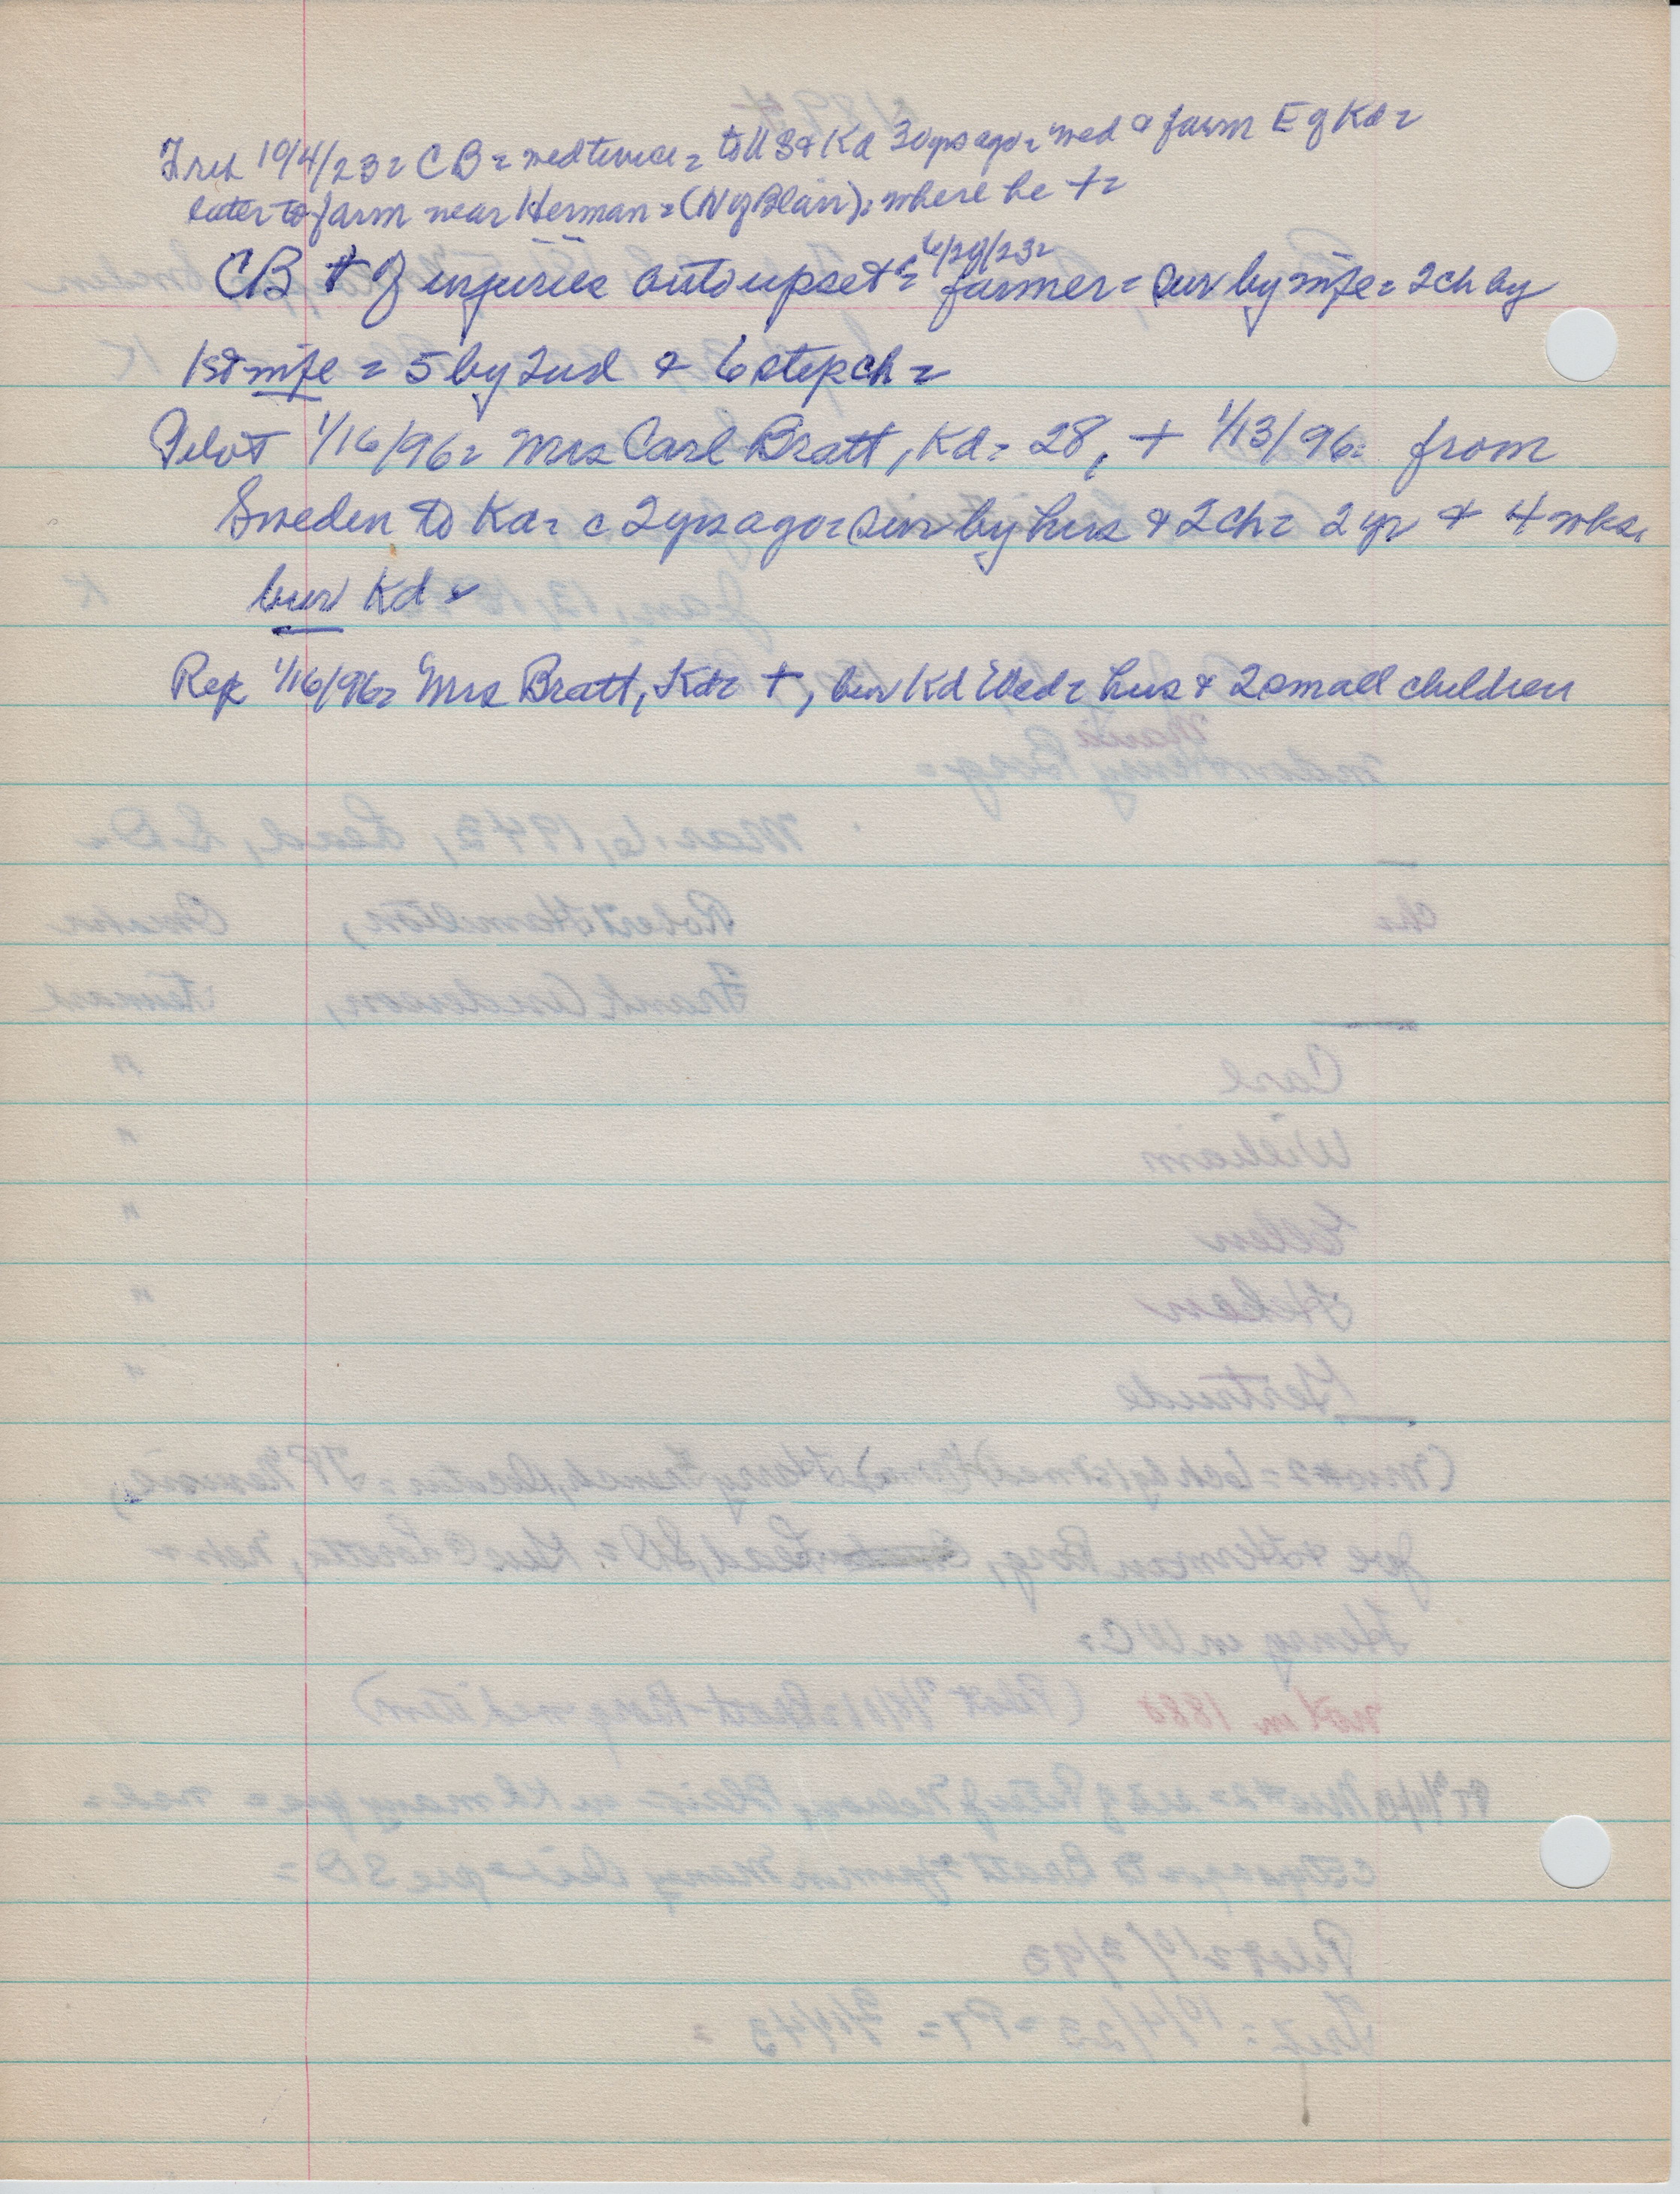 10/4/23 = CB = md twice = to US & Kd 30 yrs ago = md & farm E of Kd =
later to farm near Herman = (N of Blair), where he † =
CB † of injuries auto upset = 6/29/23 =
farmer = sur by wife = 2 ch by
1st wife = 5 by 2nd & 6 step ch =
Pilot 1/16/96 = Mrs Carl Bratt, Kd = 28, † 1/13/96 = from
Sweden to Kd = c 2 yrs ago = sur by hus & 2 ch = 2 yr & 4 wks.
bur Kd =
Rep 1/16/96 = Mrs Bratt, Kd = †, bur Kd Wed = hus & 2 small children